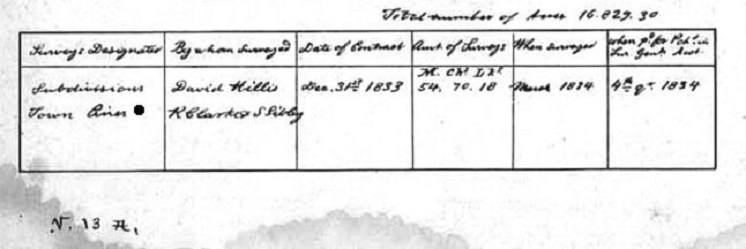 Total number of Acres 16.829.30
Surveys Designated By whom Surveyed Date of Contract Amt. of Surveys When surveyed When pd. for
M. Chs. Lks.
Subdivisions David Hillis Dec. 31st 1833 54. 70. 18 March 1834 4th qr. 1834
Town Lines R Clark & S Sibley
N. 13 H.